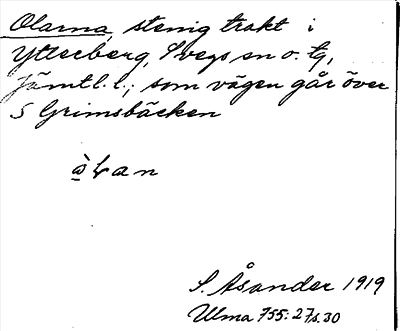 Olarna, stenig trakt i
Ytterberg, Svegs sn o. tg,
Jämtl. l.; som vägen går över
S Grimsbäcken
S. Åsander 1919
Ulma 755:27 s. 30